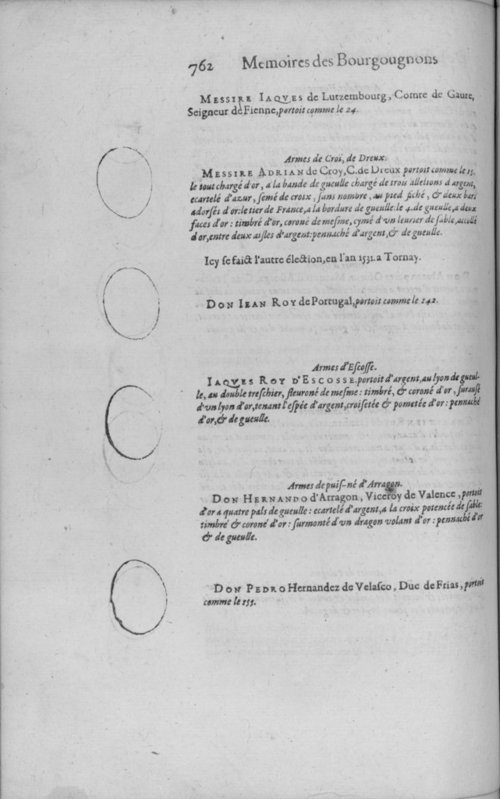 762 Memoires des Bourgougnons
MESSIRE IAQVES de Lutzembourg, Comte de Gaure,
Seigneur de Fienne, portoit comme le 24.
Armes de Croi, de Dreux.
MESSIRE ADRIAN de Croy, C. de Dreux portoit comme le 15.
le tout chargé d'or, a la bande de gueulle chargé de trois allerions d'argent,
ecartelé d'azur, semé de croix, sans nombre, au pied fiché, & deux bars
adorsés d'or: le tier de France, a la bordure de gueulle: le 4. de gueulle, a deux
faces d'or: timbré d'or, coroné de mesme, cymé d'vn leurier de sable, accollé
d'or, entre deux aisles d'argent: pennaché d'argent, & de gueulle.
Icy se faict l'autre élection, en l'an 1531. a Tornay.
DON IEAN ROY de Portugal, portoit comme le 242.
Armes d'Escosse.
IAQVES ROY D'ESCOSSE. portoit d'argent, au lyon de gueul-
le, au double treschier, fleuroné de mesme: timbré, & coroné d'or, surausé
d'vn lyon d'or, tenant l'espée d'argent, croisetée & pometée d'or: pennaché
d'or, & de gueulle.
Armes de puis-né d'Arragon.
DON HERNANDO d'Arragon, Viceroy de Valence, portoit
d'or a quatre pals de gueulle: ecartelé d'argent, a la croix potencée de sable:
timbré & coroné d'or: surmonté d'vn dragon volant d'or: pennaché d'or
& de gueulle.
DON PEDRO Hernandez de Velasco, Duc de Frias, portoit
comme le 155.